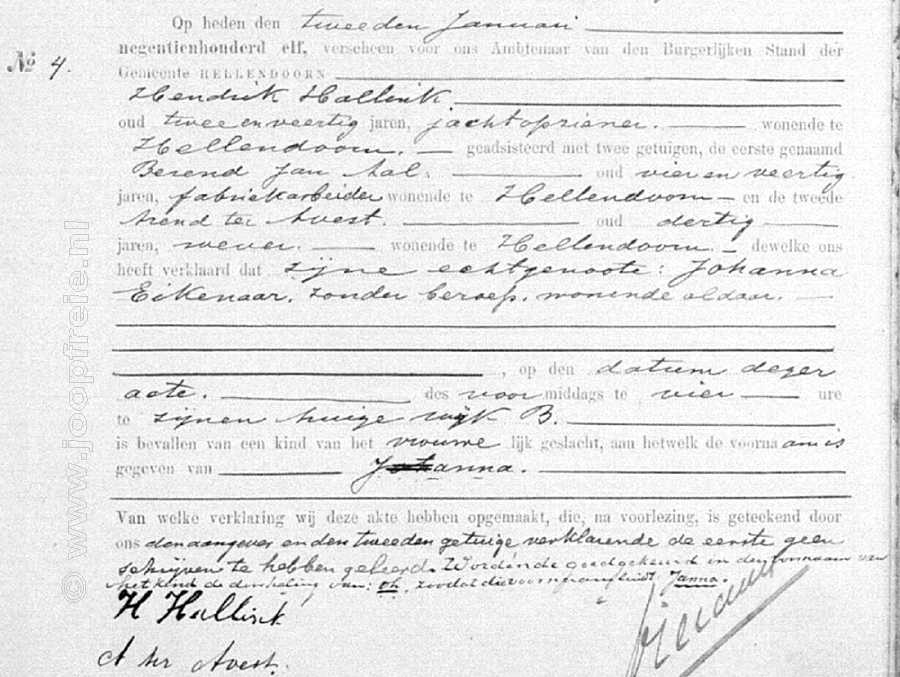 Op heden den tweeden Januari
negentienhonderd elf, verscheen voor ons Ambtenaar van den Burgerlijken Stand der
No 4.
Gemeente HELLENDOORN
Hendrik Hallink
oud twee en veertig jaren, jachtopziener. wonende te
Hellendoorn. geadsisteerd met twee getuigen, de eerste genaamd
Berend Jan Aal. oud vier en veertig
jaren, fabriekarbeider wonende te Hellendoorn en de tweede
Arend ter Avest. oud dertig
jaren, wever. wonende te Hellendoorn. dewelke ons
heeft verklaard dat zijne echtgenoote: Johanna
Eikenaar. zonder beroep. wonende aldaar.
, op den datum dezer
acte. des voor middags te vier ure
te zijnen huize wijk B.
is bevallen van een kind van het vrouwe lijk geslacht, aan hetwelk de voorna am is
gegeven van Johanna.
Van welke verklaring wij deze akte hebben opgemaakt, die, na voorlezing, is geteekend door
ons den aangever en den tweeden getuige verklarende de eerste geen
schrijven te hebben geleerd. Wordende goedgekeurd in den voornaam van
het kind de doorhaling van: oh, zoodat die voornaam luidt Janna.
H Hallink
A ter Avest.
© www.joopfreie.nl